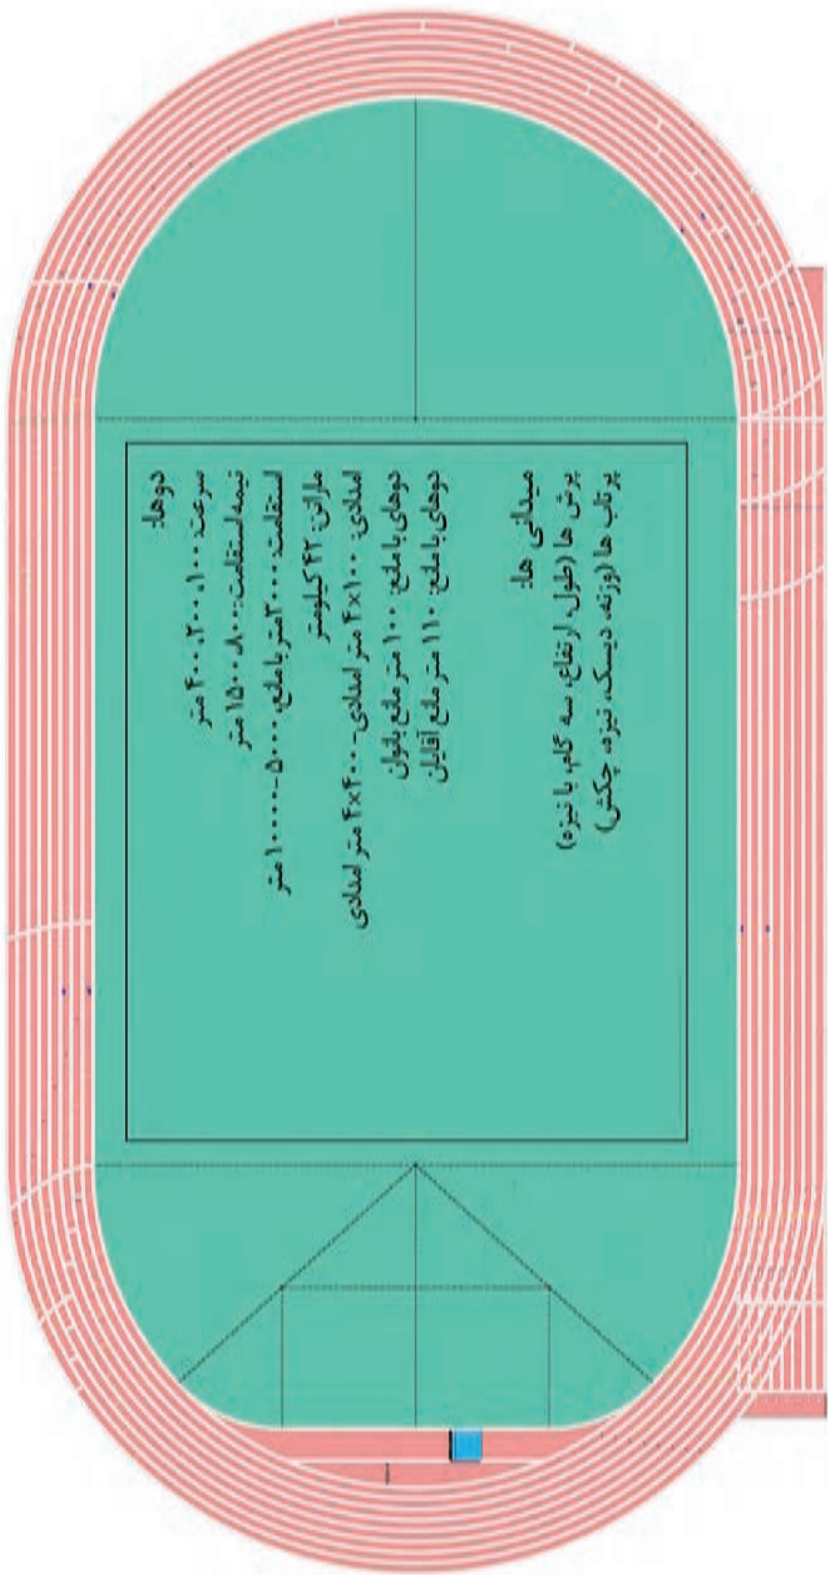 دوها:
سرعت: ۱۰۰، ۲۰۰، ۴۰۰ متر
نیمه‌استقامت: ۸۰۰، ۱۵۰۰ متر
استقامت: ۳۰۰۰ متر با مانع، ۵۰۰۰-۱۰۰۰۰ متر
ماراتن: ۴۲ کیلومتر
امدادی: ۴x۱۰۰ متر امدادی-۴x۴۰۰ متر امدادی
دوهای با مانع: ۱۰۰ متر مانع بانوان
دوهای با مانع: ۱۱۰ متر مانع آقایان
میدانی ها:
پرش ها (طول، ارتفاع، سه گام، با نیزه)
پرتاب ها (وزنه، دیسک، نیزه، چکش)